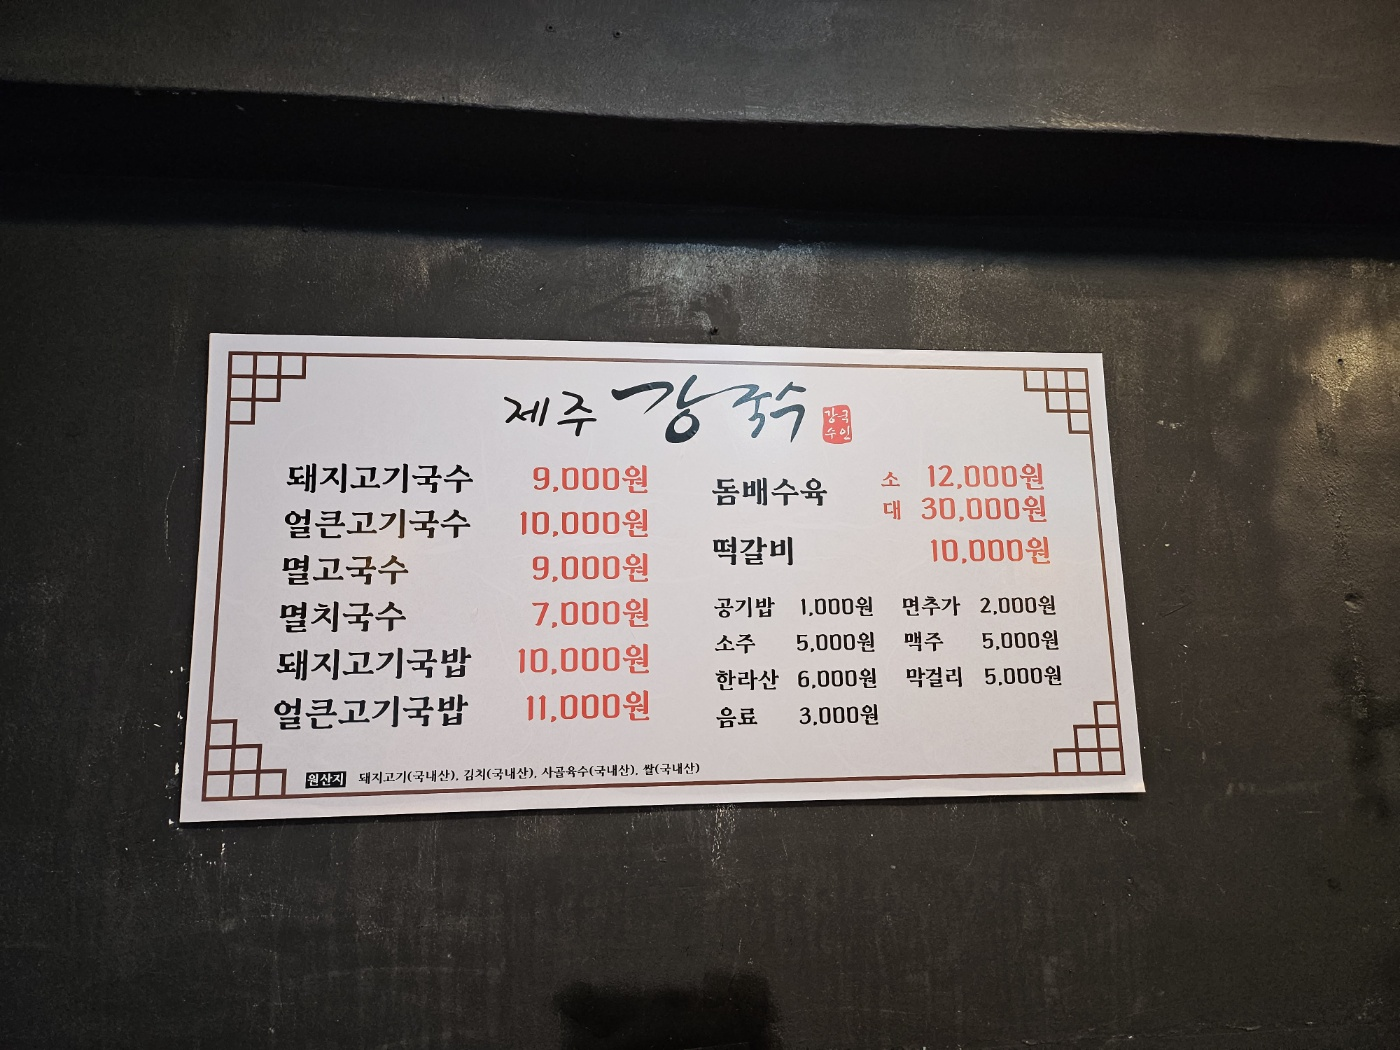 제주 강국수
강국
수인
돼지고기국수 9,000원
얼큰고기국수 10,000원
멸고국수 9,000원
멸치국수 7,000원
돼지고기국밥 10,000원
얼큰고기국밥 11,000원
돔배수육 소 12,000원
대 30,000원
떡갈비 10,000원
공기밥 1,000원 면추가 2,000원
소주 5,000원 맥주 5,000원
한라산 6,000원 막걸리 5,000원
음료 3,000원
원산지 돼지고기(국내산), 김치(국내산), 사골육수(국내산), 쌀(국내산)